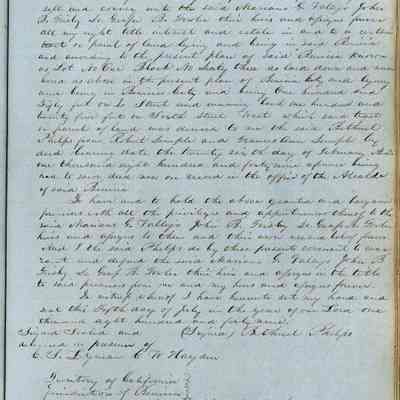 sell and convey unto the said Mariano G. Vallejo John
B. Frisby their heirs and assigns forever
all my right title interest and estate in and to a certain
or parcel of land lying and being in said Benicia
and according to the present plan of said Benicia known
as Lot
as above in the present plan of Benicia City and lying
and being in Benicia City and being One hundred and
fifty feet on Street and running back one hundred and
twenty five feet on North Street West which said tract
or parcel of land was deeded to me the said Bethuel
Phelps from Robert Semple and Semple by
deed bearing date the twenty sixth day of February
one thousand eight hundred and forty nine
had to said deed now on record in the office of the Alcalde
of said Benicia
To have and to hold the above granted and bargained
premises with all the privileges and appurtenances thereof to the
said Mariano G. Vallejo John B. Frisby
heirs and assigns to them and their own use and benefit forever
And I the said Phelps do by these presents covenant to war-
rant and defend the said Mariano G. Vallejo John B
Frisby their heirs and assigns in the title
to said premises from me and my heirs and assigns forever.
In witness whereof I have hereunto set my hand and
seal this Fifth day of July in the year of our Lord one
thousand eight hundred and forty nine.
Signed Sealed and (Signed) Bethuel Phelps
delivered in presence of
C. W. Hayden
Territory of California
Jurisdiction of Benicia